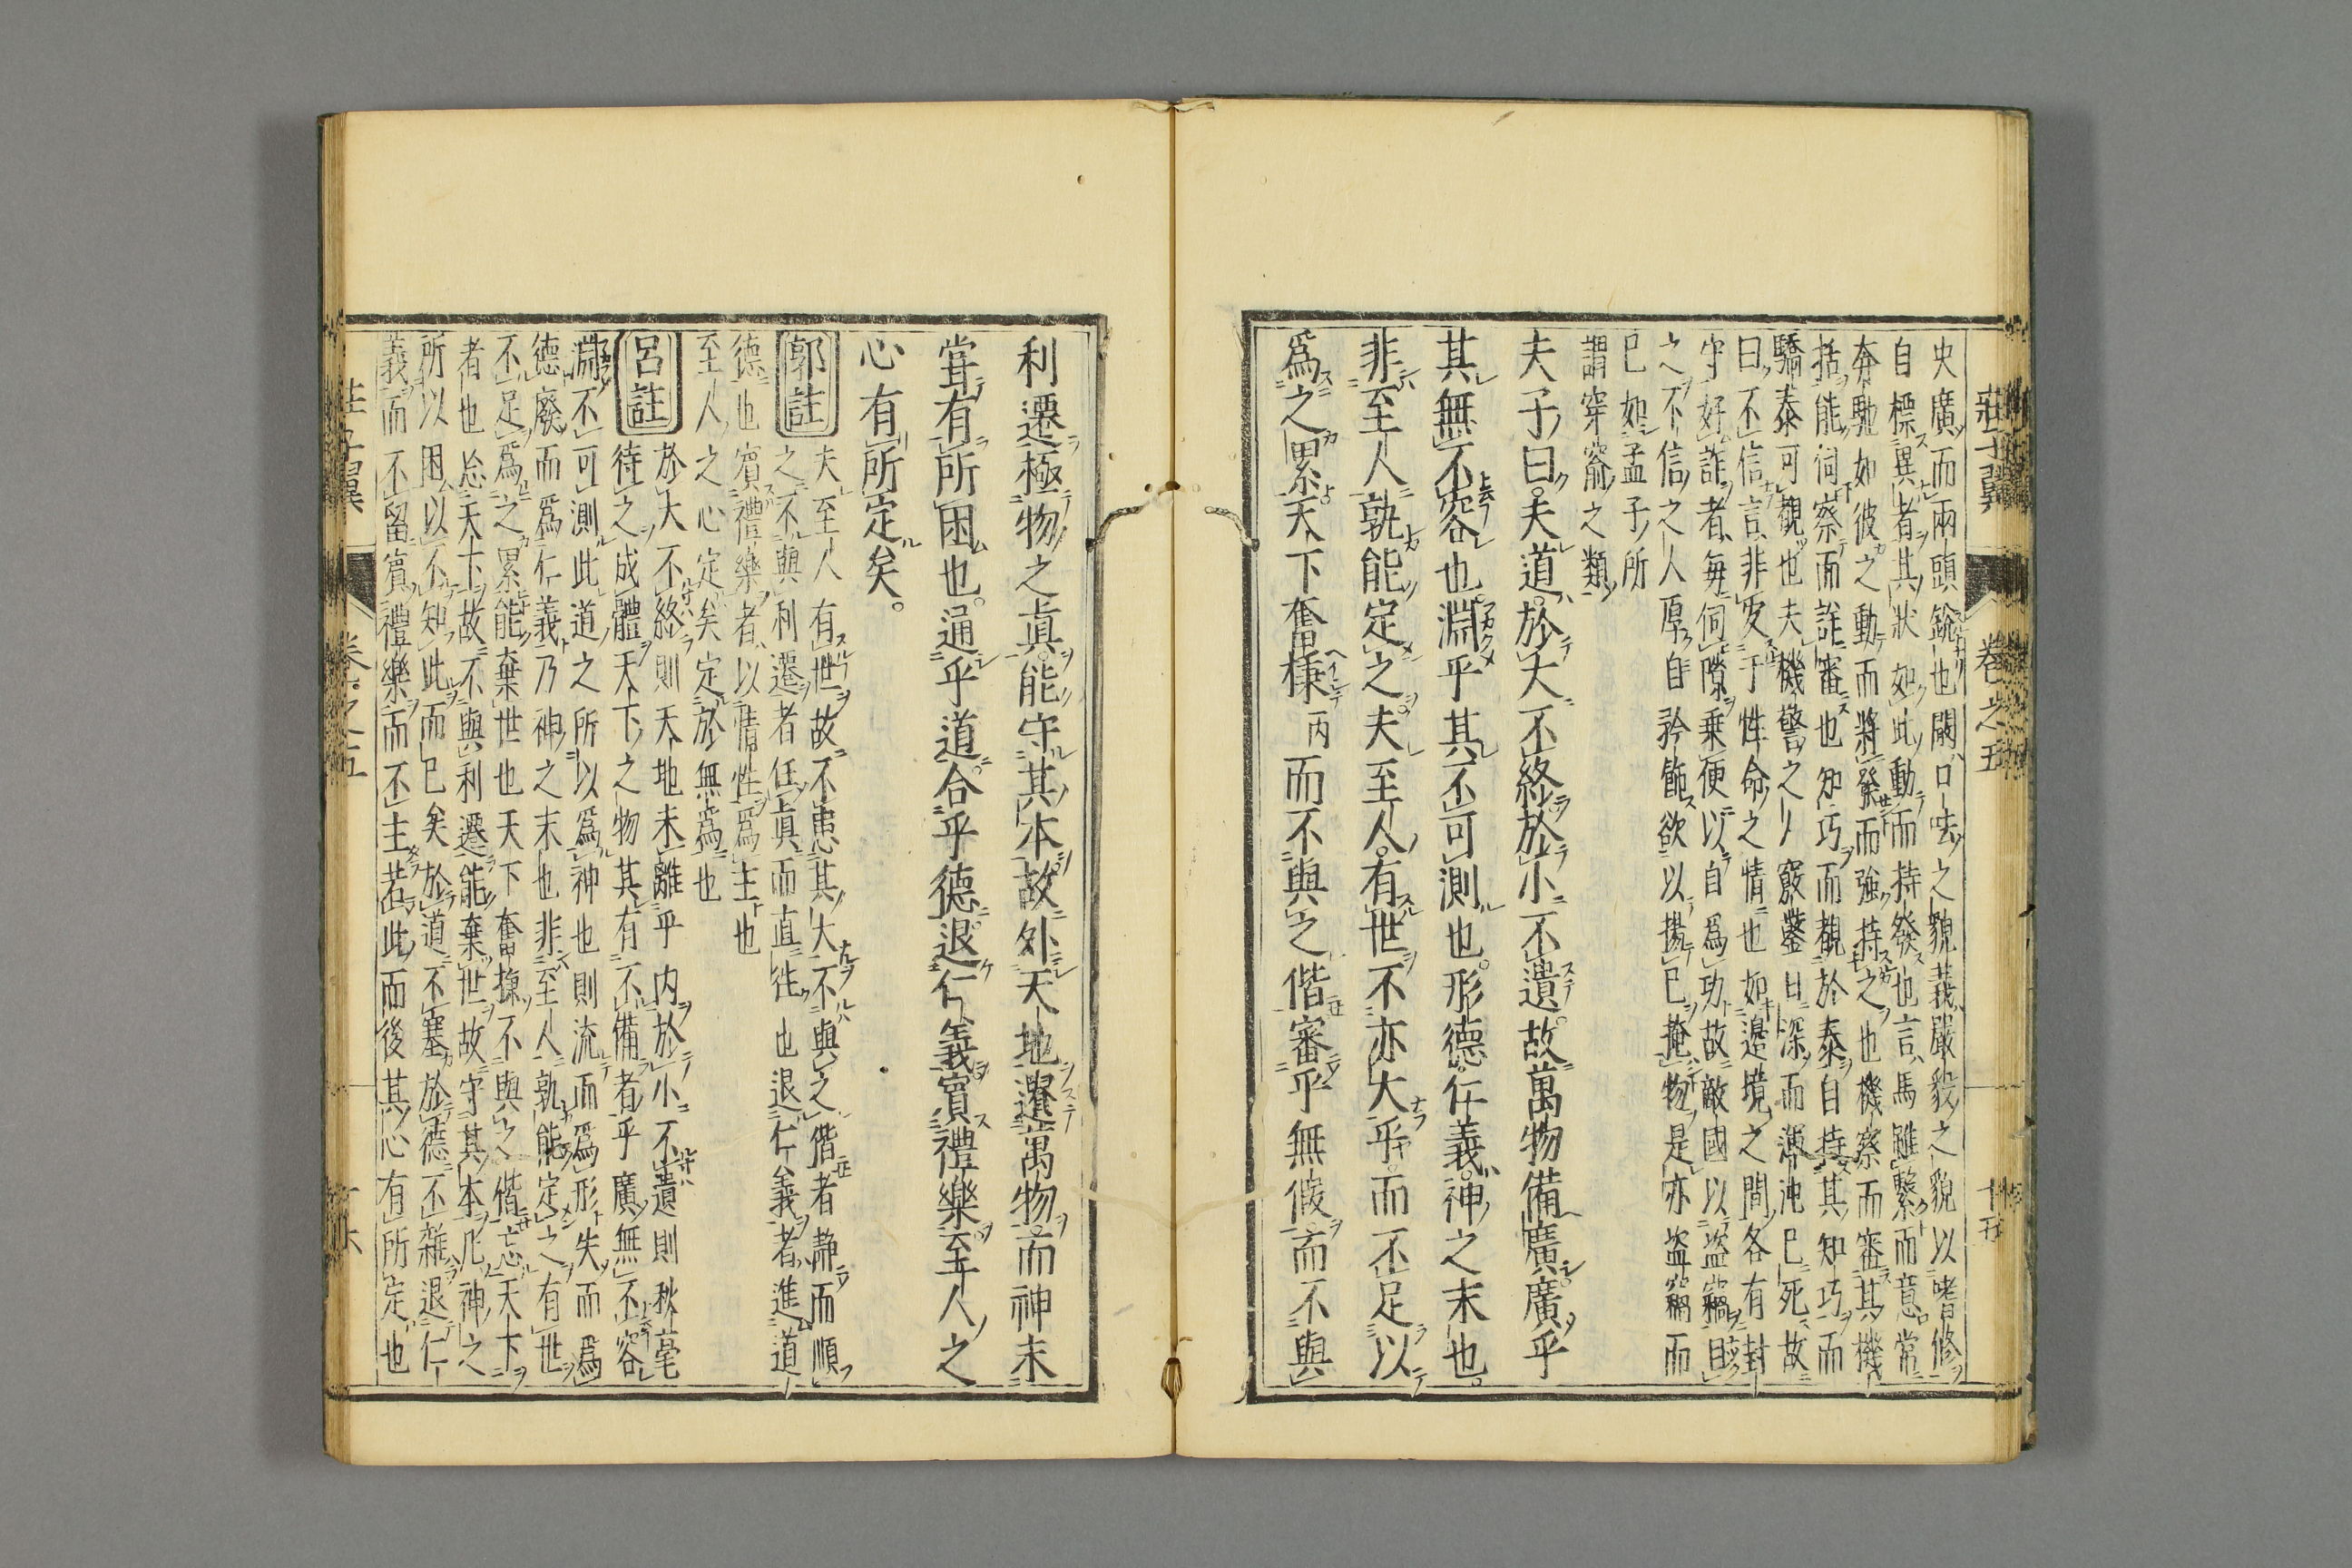 莊子翼 卷之五 十五
央廣而兩頭銳也闞口呿之貌義嚴毅之貌以嗜修
自標異者其狀如此動而持發也言馬雖繫而意常
奔馳如彼之動而將發而強持之也機察而審其機
括能伺察而詳審也知巧而觀於泰自持其知巧而
驕泰可觀也夫機警之人竅鑿日深而渾沌已死故
曰不信言非安于性命之情也如邊境之間各有封
守好詐者每伺隙乗便以自為功故敵國以盜竊目
之不信之人厚自矜飾欲以揚已掩物是亦盜竊而
已如孟子所
謂穿窬之類
夫子曰夫道於大不終於小不遺故萬物備廣廣乎
其無不容也淵乎其不可測也形德仁義神之末也
非至人孰能定之夫至人有世不亦大乎而不足以
爲之累天下奮棅丙而不與之偕審乎無假而不與
利遷極物之眞能守其本故外天地遺萬物而神未
嘗有所困也通乎道合乎德退仁義賓禮樂至人之
心有所定矣
郭註 夫至人有世故不患其大不與之偕者靜而順
之不與利遷者任眞而直徃也退仁義者進道
德也賓禮樂者以情性爲主也
至人之心定矣定於無爲也
呂註 於大不終則天地未離乎内於小不遺則秋毫
待之成體天下之物其有不備者乎廣無不容
淵不可測此道之所以爲神也則流而爲形失而爲
德廢而爲仁義乃神之末也非至人孰能定之有世
不足爲之累能棄世也天下奮棅不與之偕忘天下
者也忘天下故不與利遷能棄世故守其本凡神之
所以困以不知此而已矣於道不塞於德不雜退仁
義而不留賓禮樂而不主若此而後其心有所定也
莊子翼 卷之五 十六